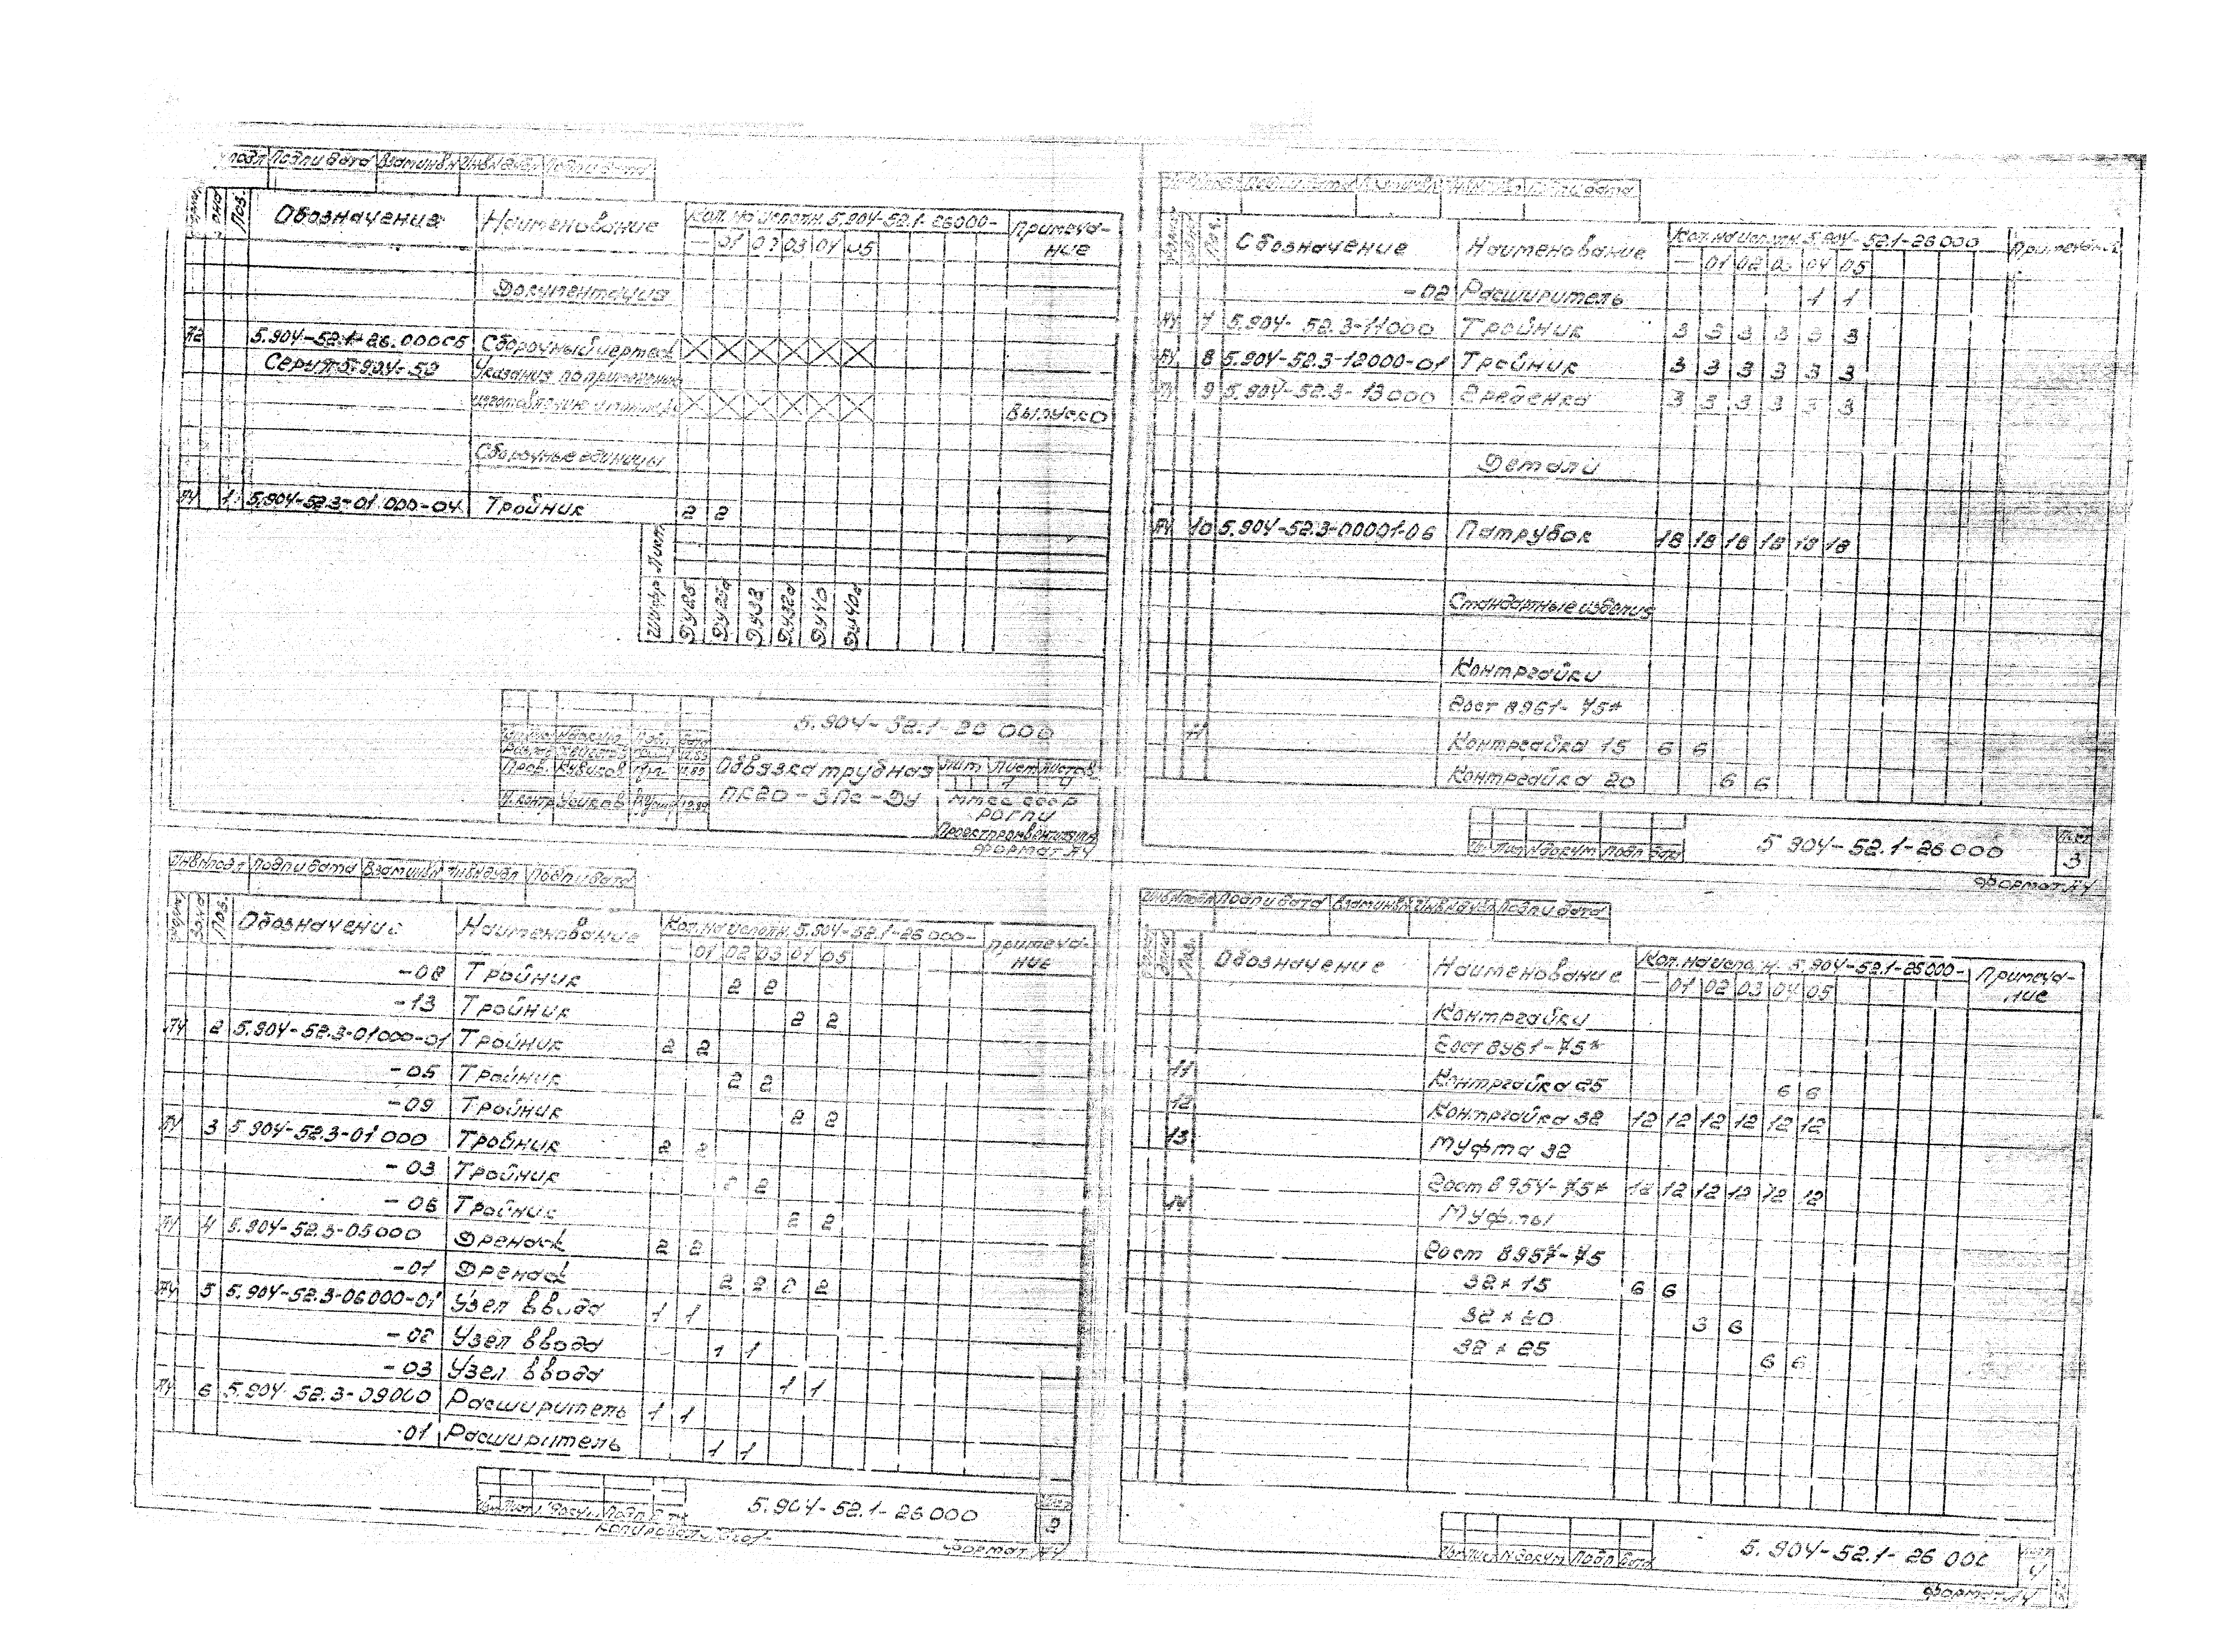 подл Подп и дата Взам инв N Инв N дубл Подп и дата
Поз. Обозначение Наименование Кол. на исполн. 5.904-52.1-26000- Примеча-
— 01 02 03 04 05 ние
Документация
А2 5.904-52.1-26.000СБ Сборочный чертеж
Серия 5.904-52 Указания по применению
изготовлению и монтажу Выпуск 0
Сборочные единицы
А4 1 5.904-52.3-01.000-04 Тройник 2 2
Ду25 Ду25а Ду32 Ду32а Ду40 Ду40а
5.904-52.1-26 000
Пров. Кувиков 12.89
Н. контр Усиков 12.89
Обвязка трубная Лит Лист Листов
1 4
ПК20-3Пс-Ду ММСС СССР
РОГПИ
Проектпромвентиляция
Формат А4
Инв N подл Подп и дата Взам инв N Инв N дубл Подп и дата
Зона Поз. Обозначение Наименование Кол. на исполн. 5.904-52.1-26000- Примеча-
— 01 02 03 04 05 ние
-08 Тройник 2 2
-13 Тройник 2 2
А4 2 5.904-52.3-01000-01 Тройник 2 2
-05 Тройник 2 2
-09 Тройник 2 2
А4 3 5.904-52.3-01 000 Тройник 2 2
-03 Тройник 2 2
-06 Тройник 2 2
А4 4 5.904-52.3-05000 Дренаж 2 2
-01 Дренаж 2 2 2 2
А4 5 5.904-52.3-06000-01 Узел ввода 1 1
-02 Узел ввода 1 1
-03 Узел ввода 1 1
А4 6 5.904-52.3-09000 Расширитель 1 1
-01 Расширитель 1 1
5.904-52.1-26000 Лист
2
Копировал Формат А4
Подп и дата
Поз. Обозначение Наименование Кол. на исполн. 5.904-52.1-26000 Примечание
— 01 02 03 04 05
-02 Расширитель 1 1
А4 7 5.904-52.3-11000 Тройник 3 3 3 3 3 3
А4 8 5.904-52.3-12000-01 Тройник 3 3 3 3 3 3
9 5.904-52.3-13000 Гребенка 3 3 3 3 3 3
Детали
А4 10 5.904-52.3-00001-06 Патрубок 18 18 18 18 18 18
Стандартные изделия
Контргайки
Гост 8961-75*
11 Контргайка 15 6 6
Контргайка 20 6 6
Лист N докум Подп Дата 5 904-52.1-26000 Лист
3
Формат А4
Инв N подл Подп и дата Взам инв N Инв N дубл Подп и дата
Поз. Обозначение Наименование Кол. на исполн. 5.904-52.1-26000- Примеча-
— 01 02 03 04 05 ние
Контргайки
Гост 8961-75*
11 Контргайка 25 6 6
12 Контргайка 32 12 12 12 12 12 12
13 Муфта 32
Гост 8954-75* 12 12 12 12 12 12
14 Муфты
Гост 8957-75
32×15 6 6
32×20 3 6
32×25 6 6
Лист N докум Подп Дата 5.904-52.1-26 000 Лист
4
Формат А4